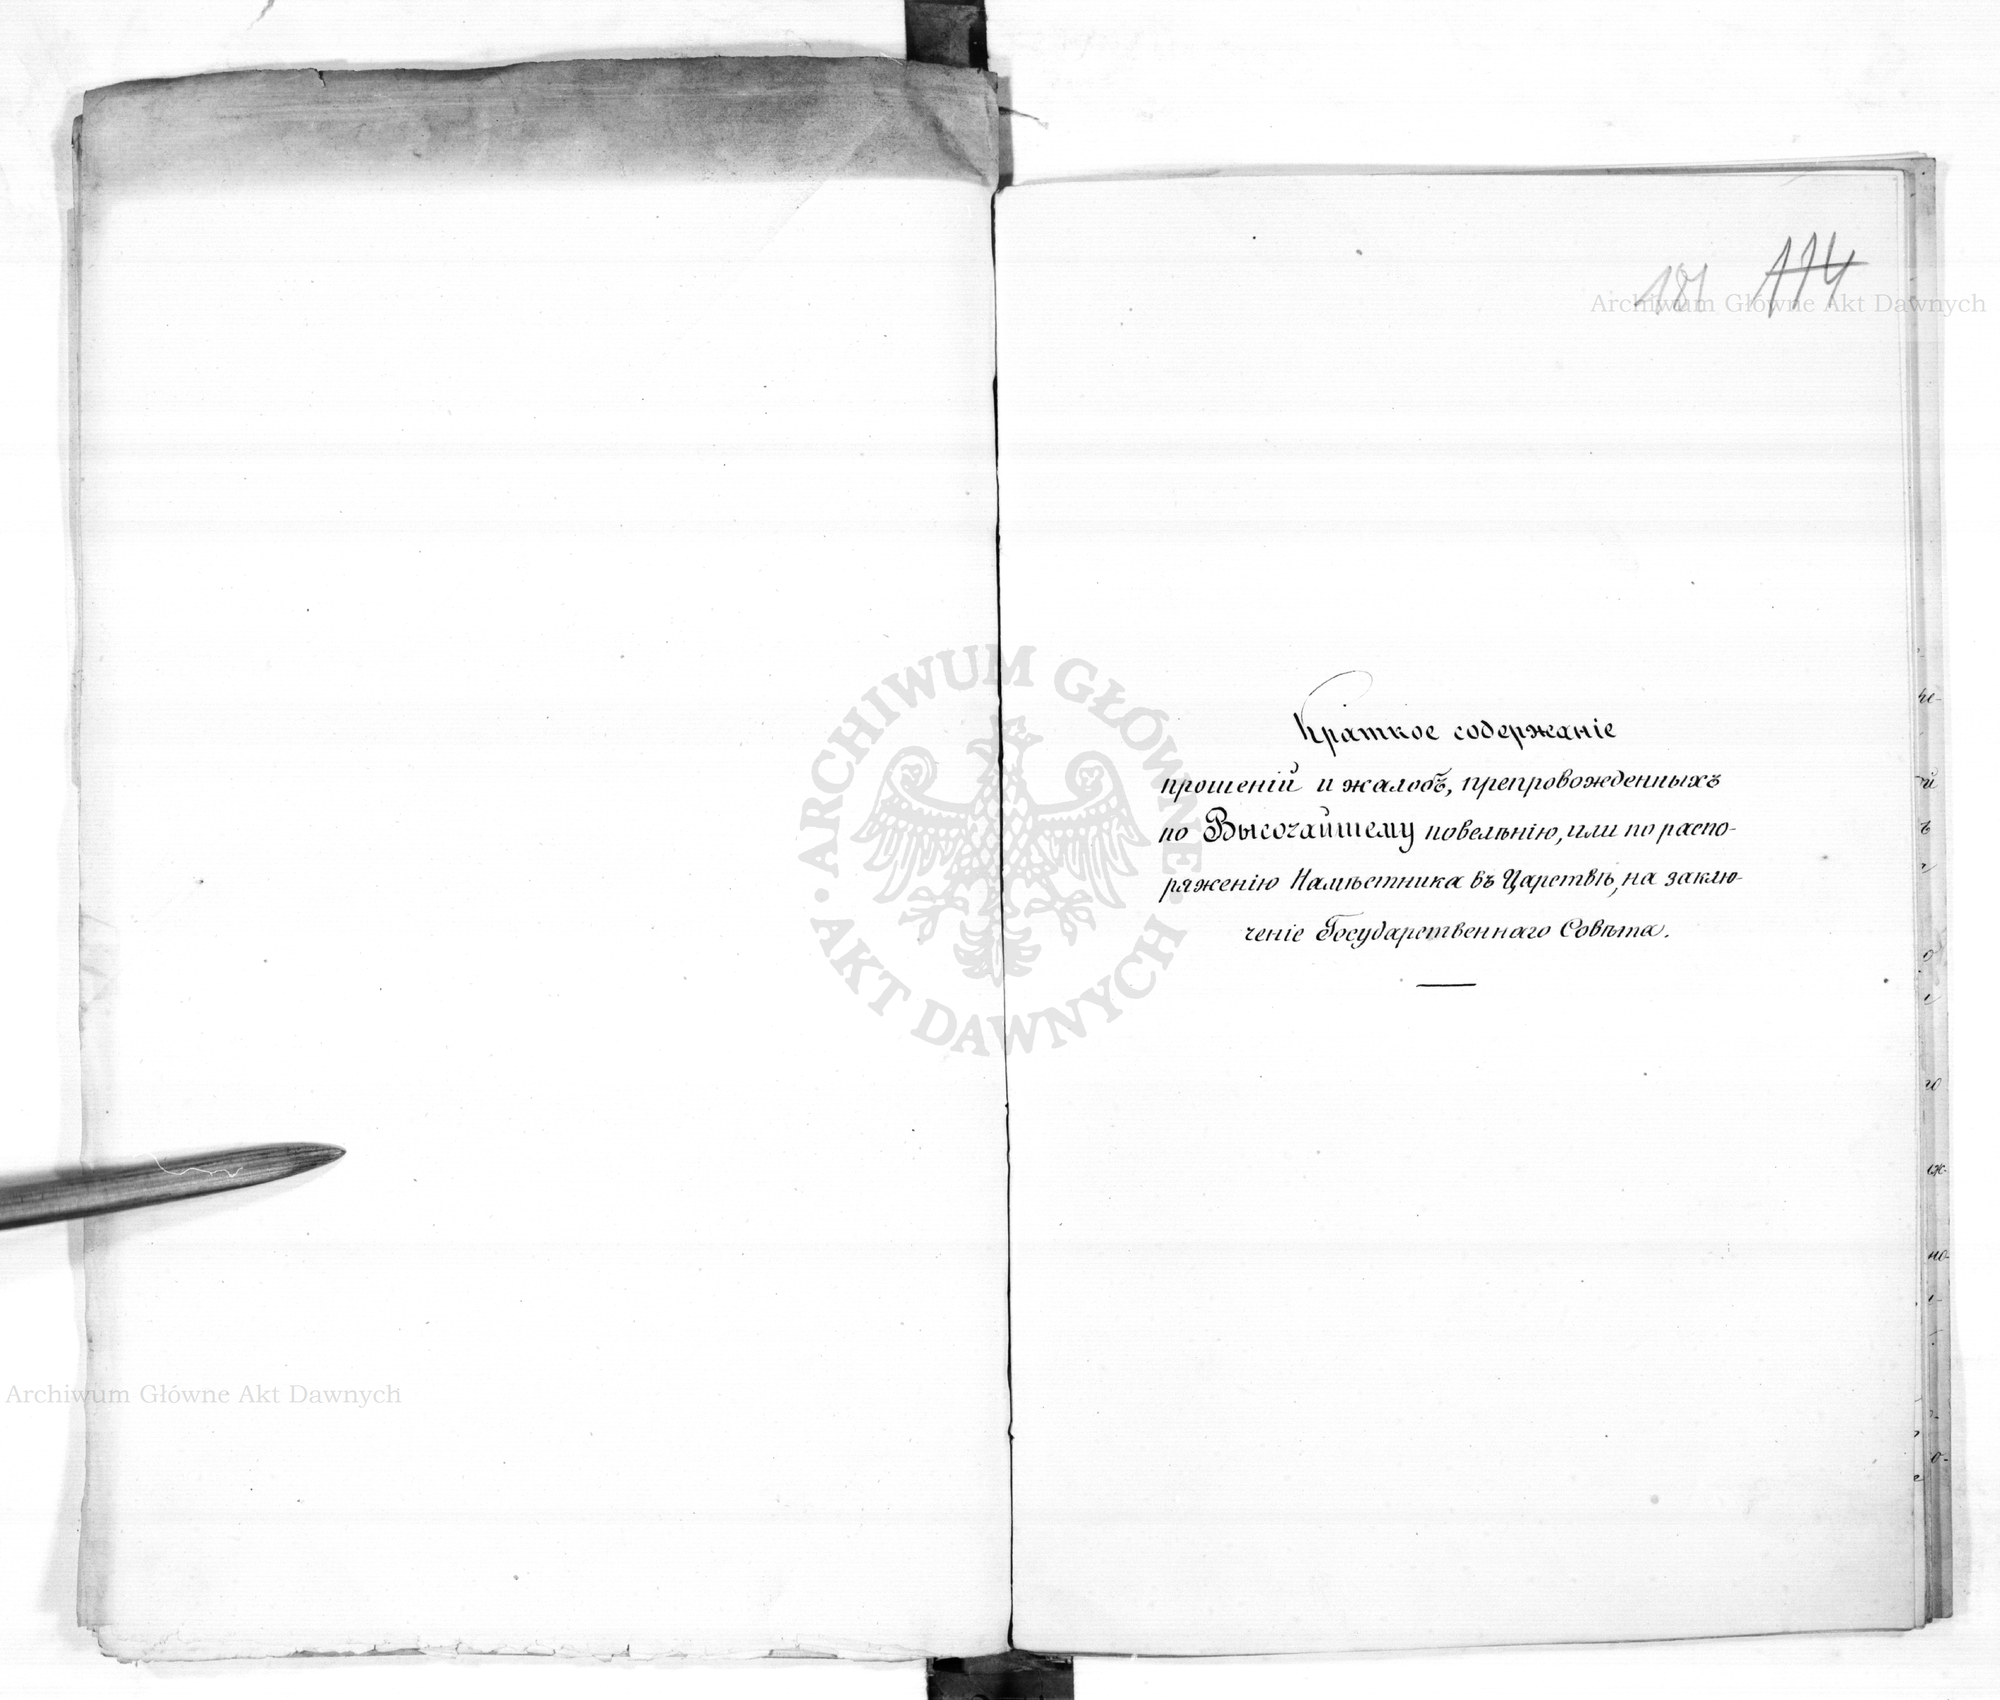 181 114
Краткое содержаніе
прошеній и жалобъ, препровожденныхъ
по Высочайшему повелѣнію, или по распо-
ряженію Намѣстника въ Царствѣ, на заклю-
ченіе Государственнаго Совѣта.
Archiwum Główne Akt Dawnych
ARCHIWUM GŁÓWNE AKT DAWNYCH
Archiwum Główne Akt Dawnych